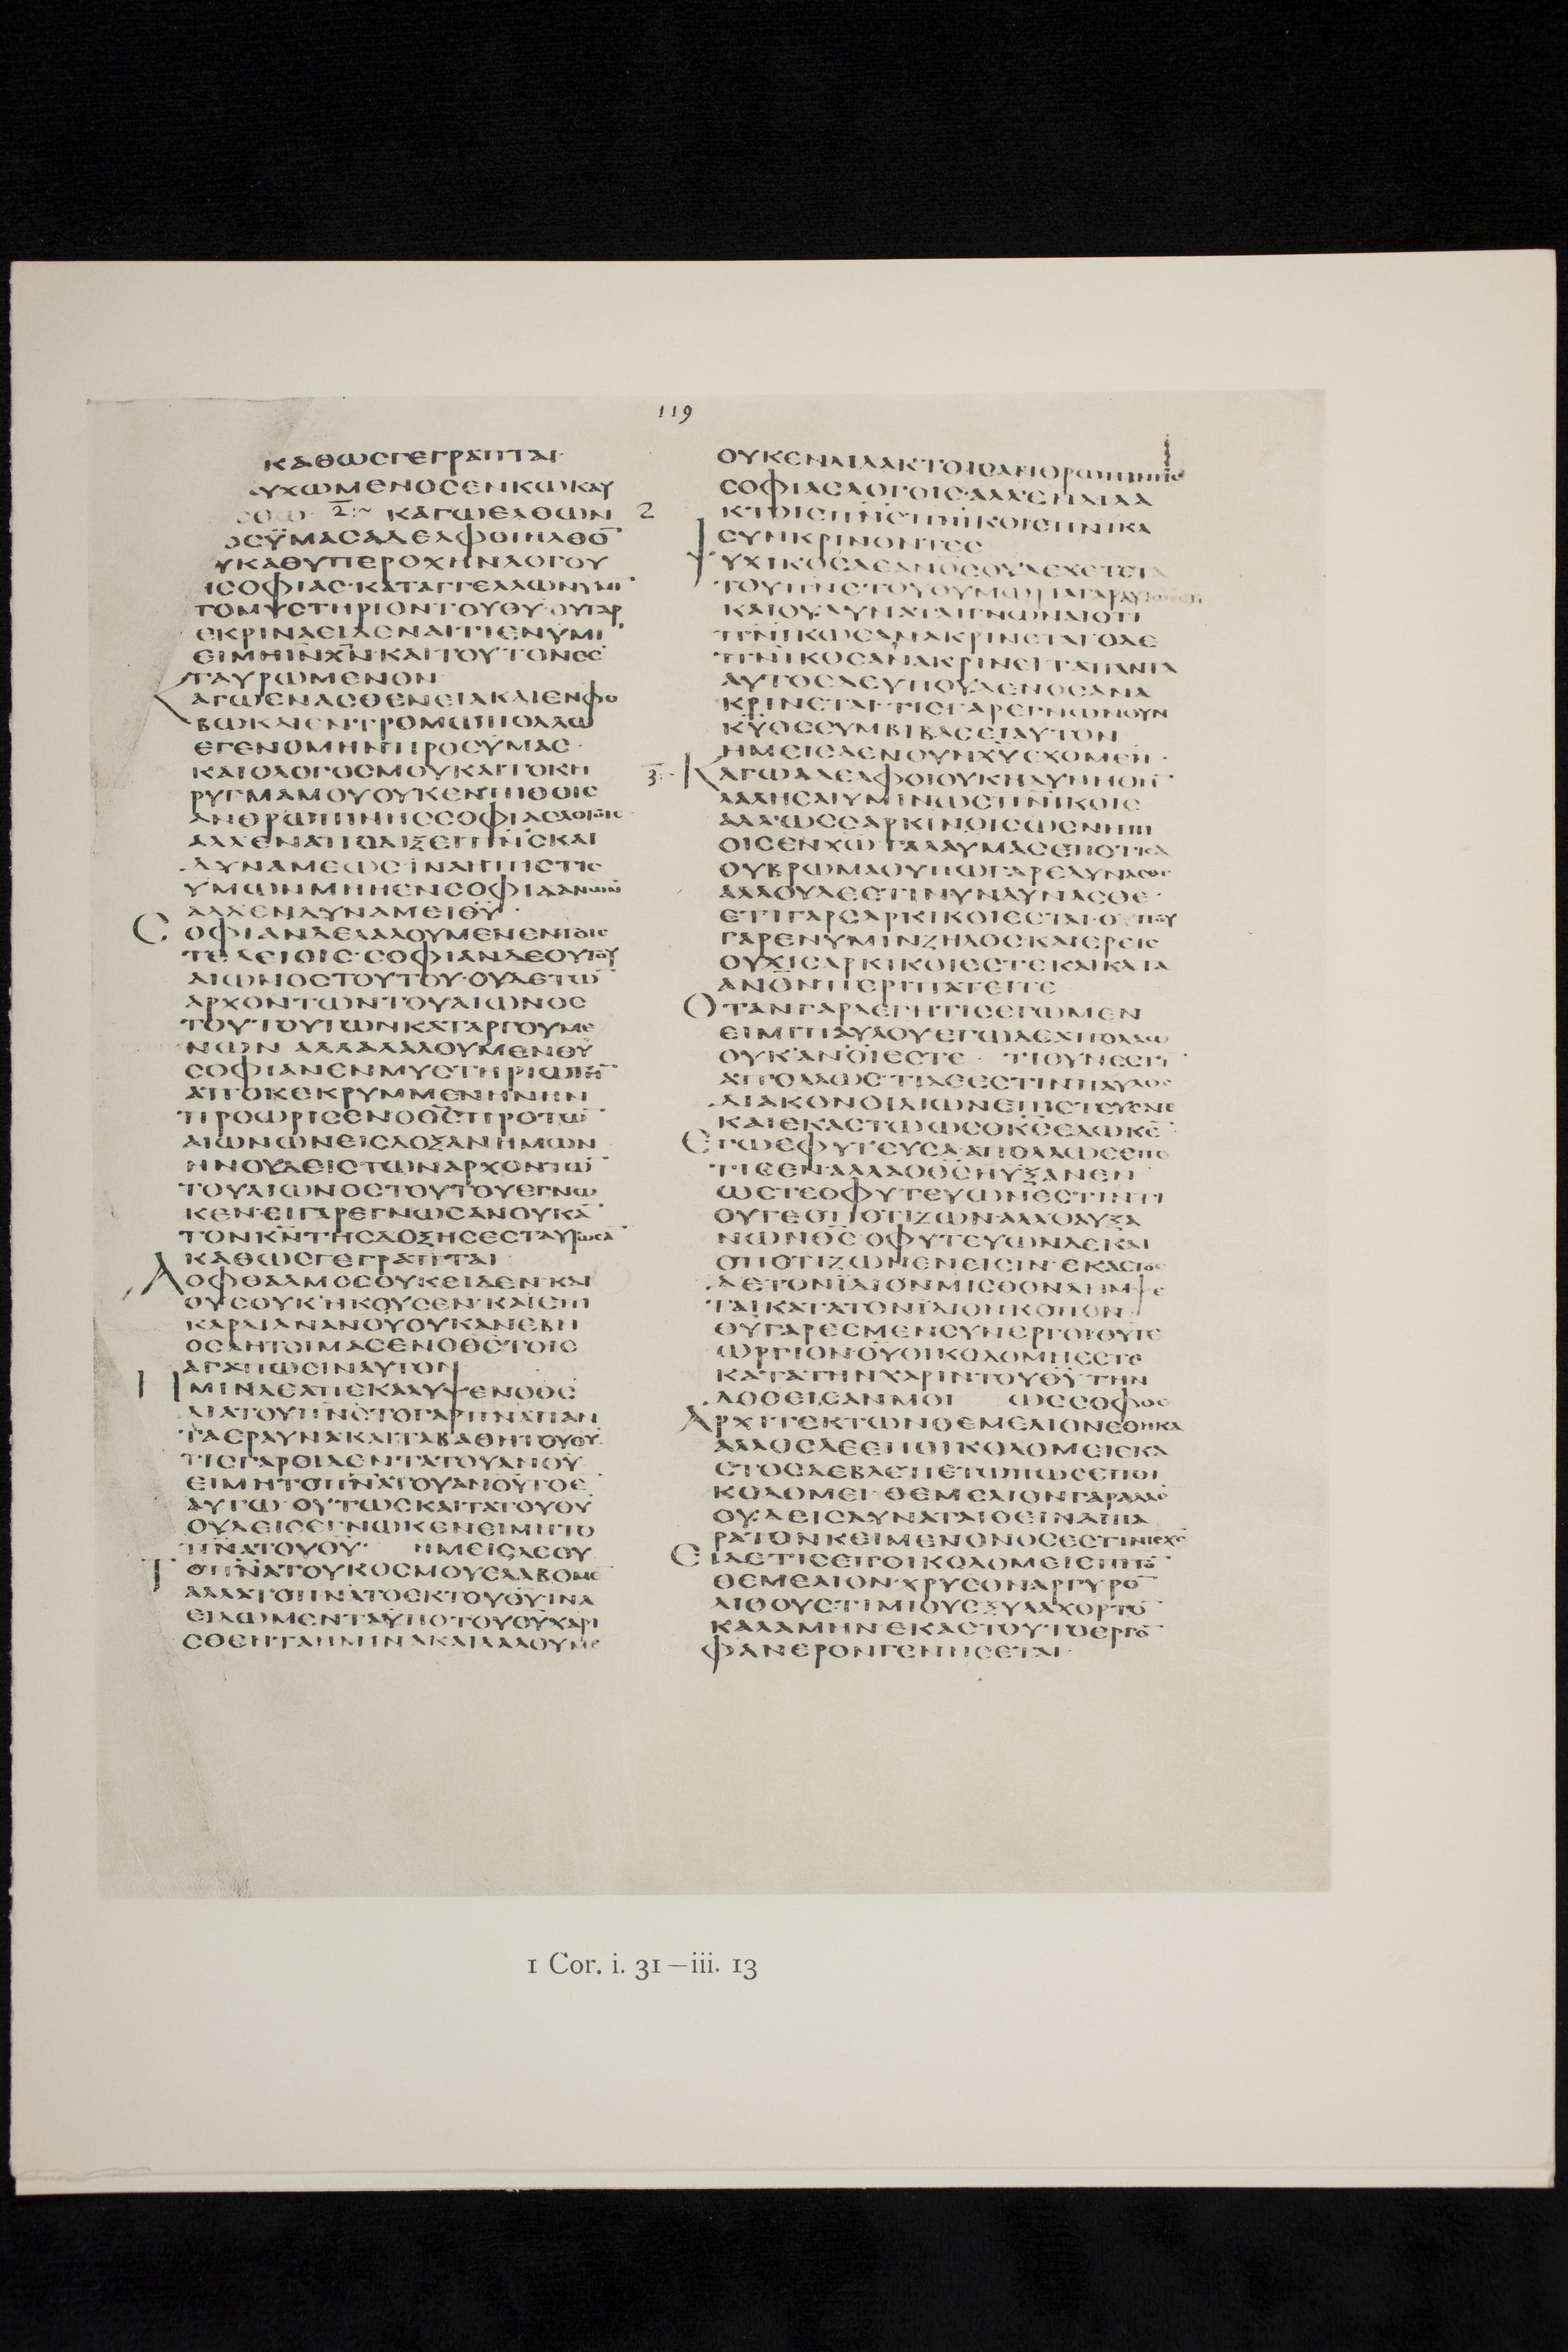 119
ΚΑΘΩΣΓΕΓΡΑΠΤΑΙ·
ΥΧΩΜΕΝΟΣΕΝΚΩΚΑΥ
2 ΚΑΓΩΕΛΘΩΝ 2
ΟΣΫΜΑΣΑΔΕΛΦΟΙΗΛΘΟ̅
ΥΚΑΘΥΠΕΡΟΧΗΝΛΟΓΟΥ
ΣΟΦΙΑΣ·ΚΑΤΑΓΓΕΛΛΩΝΥΜΙ̅
ΤΟΜΥΣΤΗΡΙΟΝΤΟΥΘΥ·ΟΥΓΑΡ
ΕΚΡΙΝΑΕΙΔΕΝΑΙΤΙΕΝΥΜΙ̅
ΕΙΜΗΙΝΧΝ·ΚΑΙΤΟΥΤΟΝΕΣ
ΤΑΥΡΩΜΕΝΟΝ
ΚΑΓΩΕΝΑΣΘΕΝΕΙΑΚΑΙΕΝΦΟ
ΒΩΚΑΙΕΝΤΡΟΜΩΠΟΛΛΩ
ΕΓΕΝΟΜΗΝΠΡΟΣΥΜΑΣ·
ΚΑΙΟΛΟΓΟΣΜΟΥΚΑΙΤΟΚΗ
ΡΥΓΜΑΜΟΥΟΥΚΕΝΠΙΘΟΙΣ
ΑΝΘΡΩΠΙΝΗΣΣΟΦΙΑΣΛΟΓΟΙΣ
ΑΛΛΕΝΑΠΟΔΙΞΕΙΠΝΣΚΑΙ
ΔΥΝΑΜΕΩΣΙΝΑΗΠΙΣΤΙΣ
ΥΜΩΝΜΗΗΕΝΣΟΦΙΑΑΝΩΝ
ΑΛΛΕΝΔΥΝΑΜΕΙΘΥ·
ΣΟΦΙΑΝΔΕΛΑΛΟΥΜΕΝΕΝΤΟΙΣ
ΤΕΛΕΙΟΙΣ·ΣΟΦΙΑΝΔΕΟΥΤΟΥ
ΑΙΩΝΟΣΤΟΥΤΟΥ·ΟΥΔΕΤΩ̅
ΑΡΧΟΝΤΩΝΤΟΥΑΙΩΝΟΣ
ΤΟΥΤΟΥΤΩΝΚΑΤΑΡΓΟΥΜΕ
ΝΩΝ ΑΛΛΑΛΑΛΟΥΜΕΝΘΥ
ΣΟΦΙΑΝΕΝΜΥΣΤΗΡΙΩΤΗ̅
ΑΠΟΚΕΚΡΥΜΜΕΝΗΝΗΝ
ΠΡΟΩΡΙΣΕΝΟΘΣΠΡΟΤΩ̅
ΑΙΩΝΩΝΕΙΣΔΟΞΑΝΗΜΩΝ
ΗΝΟΥΔΕΙΣΤΩΝΑΡΧΟΝΤΩ̅
ΤΟΥΑΙΩΝΟΣΤΟΥΤΟΥΕΓΝΩ
ΚΕΝ·ΕΙΓΑΡΕΓΝΩΣΑΝΟΥΚΑ̅
ΤΟΝΚΝΤΗΣΔΟΞΗΣΕΣΤΑΥΡΩΣΑ̅
ΚΑΘΩΣΓΕΓΡΑΠΤΑΙ
ΑΟΦΘΑΛΜΟΣΟΥΚΕΙΔΕΝ·ΚΑΙ
ΟΥΣΟΥΚΗΚΟΥΣΕΝ·ΚΑΙΕΠΙ
ΚΑΡΔΙΑΝΑΝΟΥΟΥΚΑΝΕΒΗ
ΟΣΑΗΤΟΙΜΑΣΕΝΟΘΣΤΟΙΣ
ΑΓΑΠΩΣΙΝΑΥΤΟΝ
ΗΜΙΝΔΕΑΠΕΚΑΛΥΨΕΝΟΘΣ
ΔΙΑΤΟΥΠΝΣΤΟΓΑΡΠΝΑΠΑΝ
ΤΑΕΡΑΥΝΑΚΑΙΤΑΒΑΘΗΤΟΥΘΥ·
ΤΙΣΓΑΡΟΙΔΕΝΤΑΤΟΥΑΝΟΥ
ΕΙΜΗΤΟΠΝΑΤΟΥΑΝΟΥΤΟΕ̅
ΑΥΤΩ·ΟΥΤΩΣΚΑΙΤΑΤΟΥΘΥ
ΟΥΔΕΙΣΕΓΝΩΚΕΝΕΙΜΗΤΟ
ΠΝΑΤΟΥΘΥ· ΗΜΕΙΣΔΕΟΥ
ΤΟΠΝΑΤΟΥΚΟΣΜΟΥΕΛΑΒΟΜΕ̅
ΑΛΛΑΤΟΠΝΑΤΟΕΚΤΟΥΘΥ·ΙΝΑ
ΕΙΔΩΜΕΝΤΑΫΠΟΤΟΥΘΥΧΑΡΙ
ΣΘΕΝΤΑΗΜΙΝΑΚΑΙΛΑΛΟΥΜΕ̅
ΟΥΚΕΝΔΙΔΑΚΤΟΙΣΑΝΘΡΩΠΙΝΗΣ
ΣΟΦΙΑΣΛΟΓΟΙΣ·ΑΛΛΕΝΔΙΔΑ
ΚΤΟΙΣΠΝΣΠΝΙΚΟΙΣΠΝΙΚΑ
ΣΥΝΚΡΙΝΟΝΤΕΣ
ΨΥΧΙΚΟΣΔΕΑΝΟΣΟΥΔΕΧΕΤΕΤΑ
ΤΟΥΠΝΣΤΟΥΘΥΜΩΡΙΑΓΑΡΑΥΤΩ
ΚΑΙΟΥΔΥΝΑΤΑΙΓΝΩΝΑΙΟΤΙ
ΠΝΙΚΩΣΑΝΑΚΡΙΝΕΤΑΙ·ΟΔΕ
ΠΝΙΚΟΣΑΝΑΚΡΙΝΕΙΤΑΠΑΝΤΑ
ΑΥΤΟΣΔΕΥΠΟΥΔΕΝΟΣΑΝΑ
ΚΡΙΝΕΤΑΙ·ΤΙΣΓΑΡΕΓΝΩΝΟΥΝ
ΚΥΟΣΣΥΜΒΙΒΑΣΕΙΑΥΤΟΝ
ΗΜΕΙΣΔΕΝΟΥΝΧΥΕΧΟΜΕΝ·
3 ΚΑΓΩΑΔΕΛΦΟΙΟΥΚΗΔΥΝΗΘΗ̅
ΛΑΛΗΣΑΙΥΜΙΝΩΣΠΝΙΚΟΙΣ
ΑΛΛΩΣΣΑΡΚΙΝΟΙΣΩΣΝΗΠΙ
ΟΙΣΕΝΧΩ ΓΑΛΑΥΜΑΣΕΠΟΤΙΣΑ
ΟΥΒΡΩΜΑΟΥΠΩΓΑΡΕΔΥΝΑΣΘΕ
ΑΛΛΟΥΔΕΕΤΙΝΥΝΔΥΝΑΣΘΕ·
ΕΤΙΓΑΡΣΑΡΚΙΚΟΙΕΣΤΑΙ·ΟΠΟΥ
ΓΑΡΕΝΥΜΙΝΖΗΛΟΣΚΑΙΕΡΕΙΣ
ΟΥΧΙΣΑΡΚΙΚΟΙΕΣΤΕΚΑΙΚΑΤΑ
ΑΝΟΝΠΕΡΙΠΑΤΕΙΤΕ
ΟΤΑΝΓΑΡΛΕΓΗΤΙΣΕΓΩΜΕΝ
ΕΙΜΙΠΑΥΛΟΥΕΓΩΔΕΑΠΟΛΛΩ
ΟΥΚΑΝΟΙΕΣΤΕ· ΤΙΟΥΝΕΣΤΙ̅
ΑΠΟΛΛΩΣ·ΤΙΔΕΕΣΤΙΝΠΑΥΛΟΣ
ΔΙΑΚΟΝΟΙΔΙΩΝΕΠΙΣΤΕΥΣΑΤΕ
ΚΑΙΕΚΑΣΤΩΩΣΟΚΣΕΔΩΚΕ̅
ΕΓΩΕΦΥΤΕΥΣΑ·ΑΠΟΛΛΩΣΕΠΟ
ΤΙΣΕΝ·ΑΛΛΑΟΘΣΗΥΞΑΝΕΝ
ΩΣΤΕΟΦΥΤΕΥΩΝΕΣΤΙΝΤΙ
ΟΥΤΕΟΠΟΤΙΖΩΝ·ΑΛΛΟΑΥΞΑ
ΝΩΝΘΣ ΟΦΥΤΕΥΩΝΔΕΚΑΙ
ΟΠΟΤΙΖΩΝΕΝΕΙΣΙΝ·ΕΚΑΣΤΟΣ
ΔΕΤΟΝΪΔΙΟΝΜΙΣΘΟΝΛΗΜΨΕ
ΤΑΙΚΑΤΑΤΟΝΪΔΙΟΝΚΟΠΟΝ·
ΘΥΓΑΡΕΣΜΕΝΣΥΝΕΡΓΟΙΘΥΓΕ
ΩΡΓΙΟΝ·ΘΥΟΙΚΟΔΟΜΗΕΣΤΕ
ΚΑΤΑΤΗΝΧΑΡΙΝΤΟΥΘΥΤΗΝ
ΔΟΘΕΙΣΑΝΜΟΙ ΩΣΣΟΦΟΣ
ΑΡΧΙΤΕΚΤΩΝΘΕΜΕΛΙΟΝΕΘΗΚΑ
ΑΛΛΟΣΔΕΕΠΟΙΚΟΔΟΜΕΙΕΚΑ
ΣΤΟΣΔΕΒΛΕΠΕΤΩΠΩΣΕΠΟΙ
ΚΟΔΟΜΕΙ·ΘΕΜΕΛΙΟΝΓΑΡΑΛΛΟ̅
ΟΥΔΕΙΣΔΥΝΑΤΑΙΘΕΙΝΑΙΠΑ
ΡΑΤΟΝΚΕΙΜΕΝΟΝΟΣΕΣΤΙΝΙΣΧΣ
ΕΙΔΕΤΙΣΕΠΟΙΚΟΔΟΜΕΙΕΠΙΤΟ̅
ΘΕΜΕΛΙΟΝ·ΧΡΥΣΟΝΑΡΓΥΡΟ̅
ΛΙΘΟΥΣΤΙΜΙΟΥΣΞΥΛΑΧΟΡΤΟ̅
ΚΑΛΑΜΗΝΕΚΑΣΤΟΥΤΟΕΡΓΟ̅
ΦΑΝΕΡΟΝΓΕΝΗΣΕΤΑΙ·
1 Cor. i. 31—iii. 13